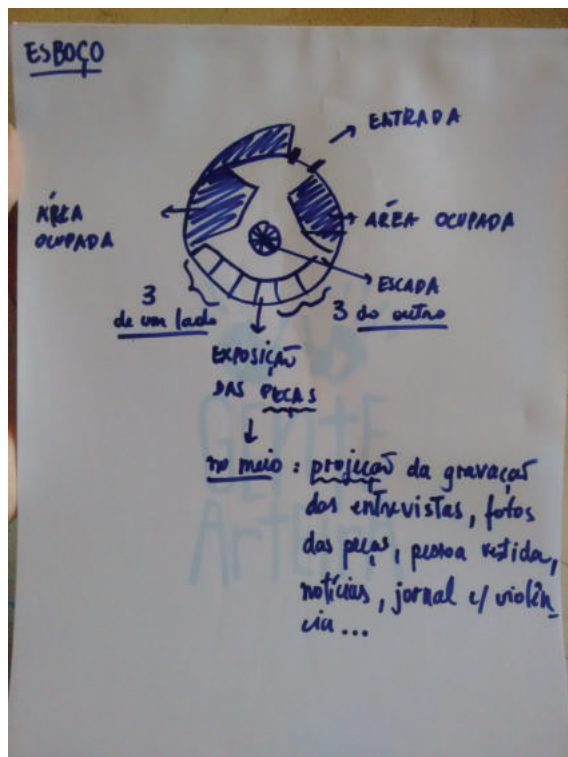 ESBOÇO
ENTRADA
ÁREA
OCUPADA
ÁREA OCUPADA
ESCADA
3
de um lado
3 do outro
EXPOSIÇÃO
DAS PEÇAS
no meio : projeção da gravação
das entrevistas, fotos
das peças, pessoa vestida,
notícias, jornal c/ violên
cia...
GENTE
ArTEIrA